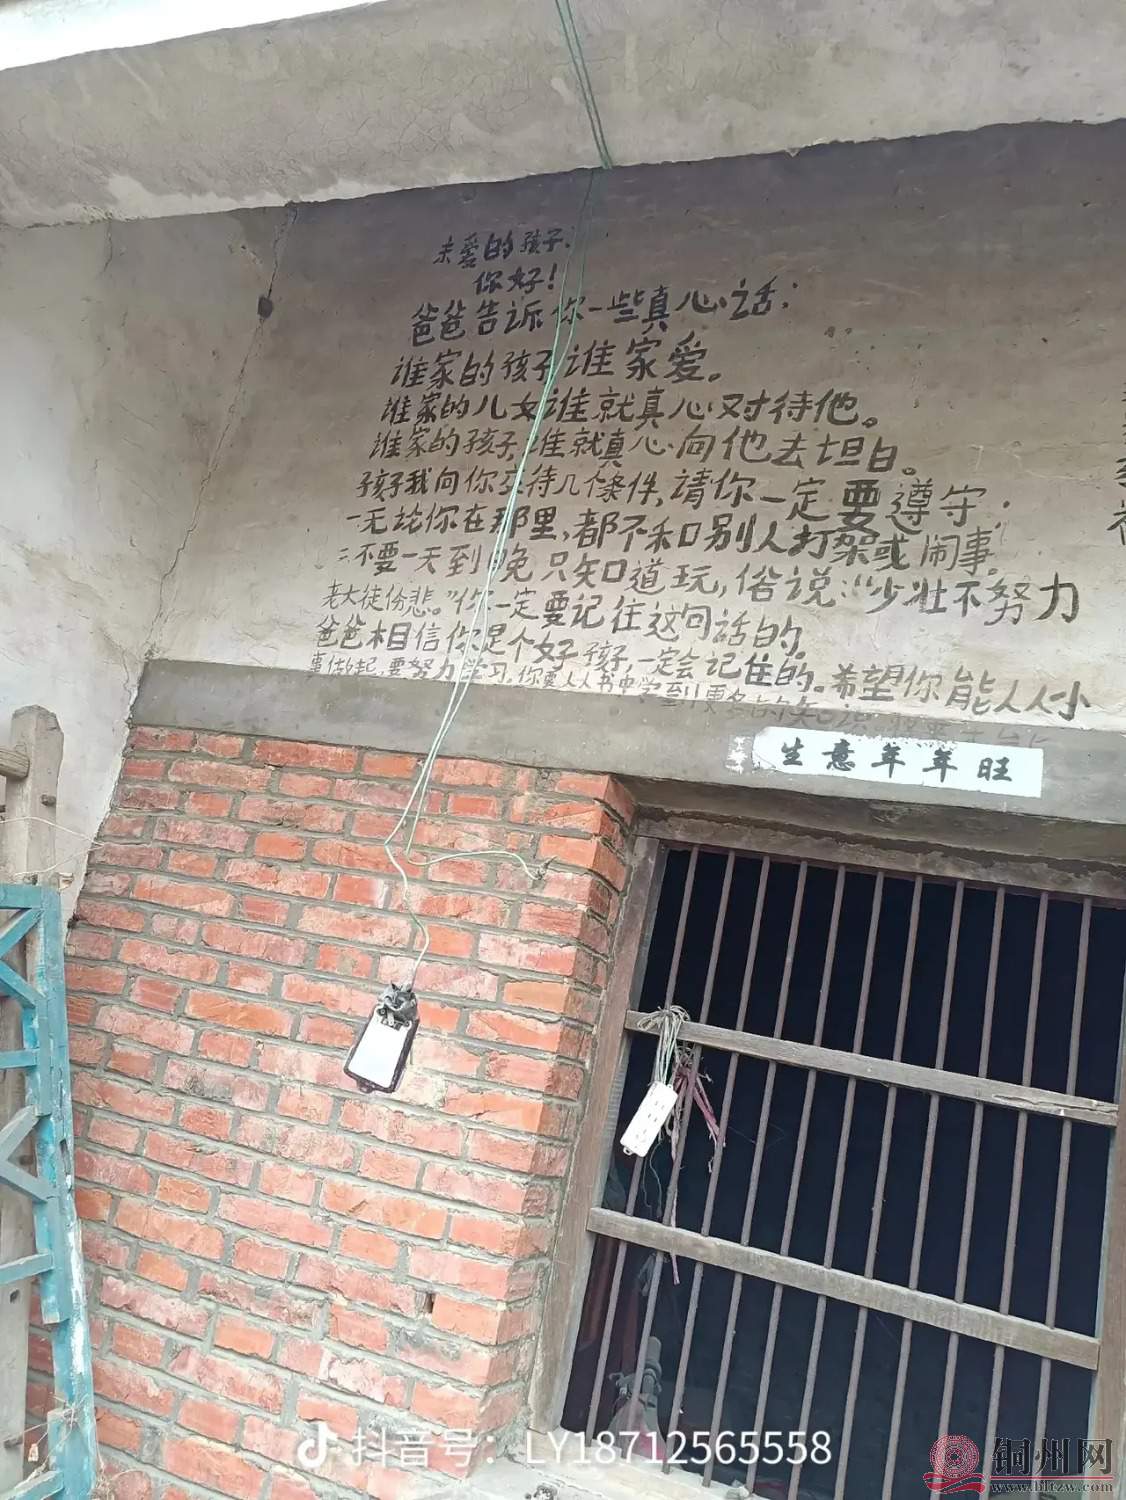 亲爱的孩子:
你好!
爸爸告诉你一些真心话:
谁家的孩子谁家爱。
谁家的儿女谁就真心对待他。
谁家的孩子,谁就真心向他去坦白。
孩子我向你交待几个条件,请你一定要遵守:
一无论你在那里,都不和别人打架或闹事。
二:不要一天到晚只知道玩,俗说:“少壮不努力
老大徒伤悲。”你一定要记住这句话的。
爸爸相信你是个好孩子,一定会记住的。希望你能从小
事做起,要努力学习,你要从书中学到更多的知识
生意年年旺
抖音号:LY18712565558
铜州网
www.bltzw.com